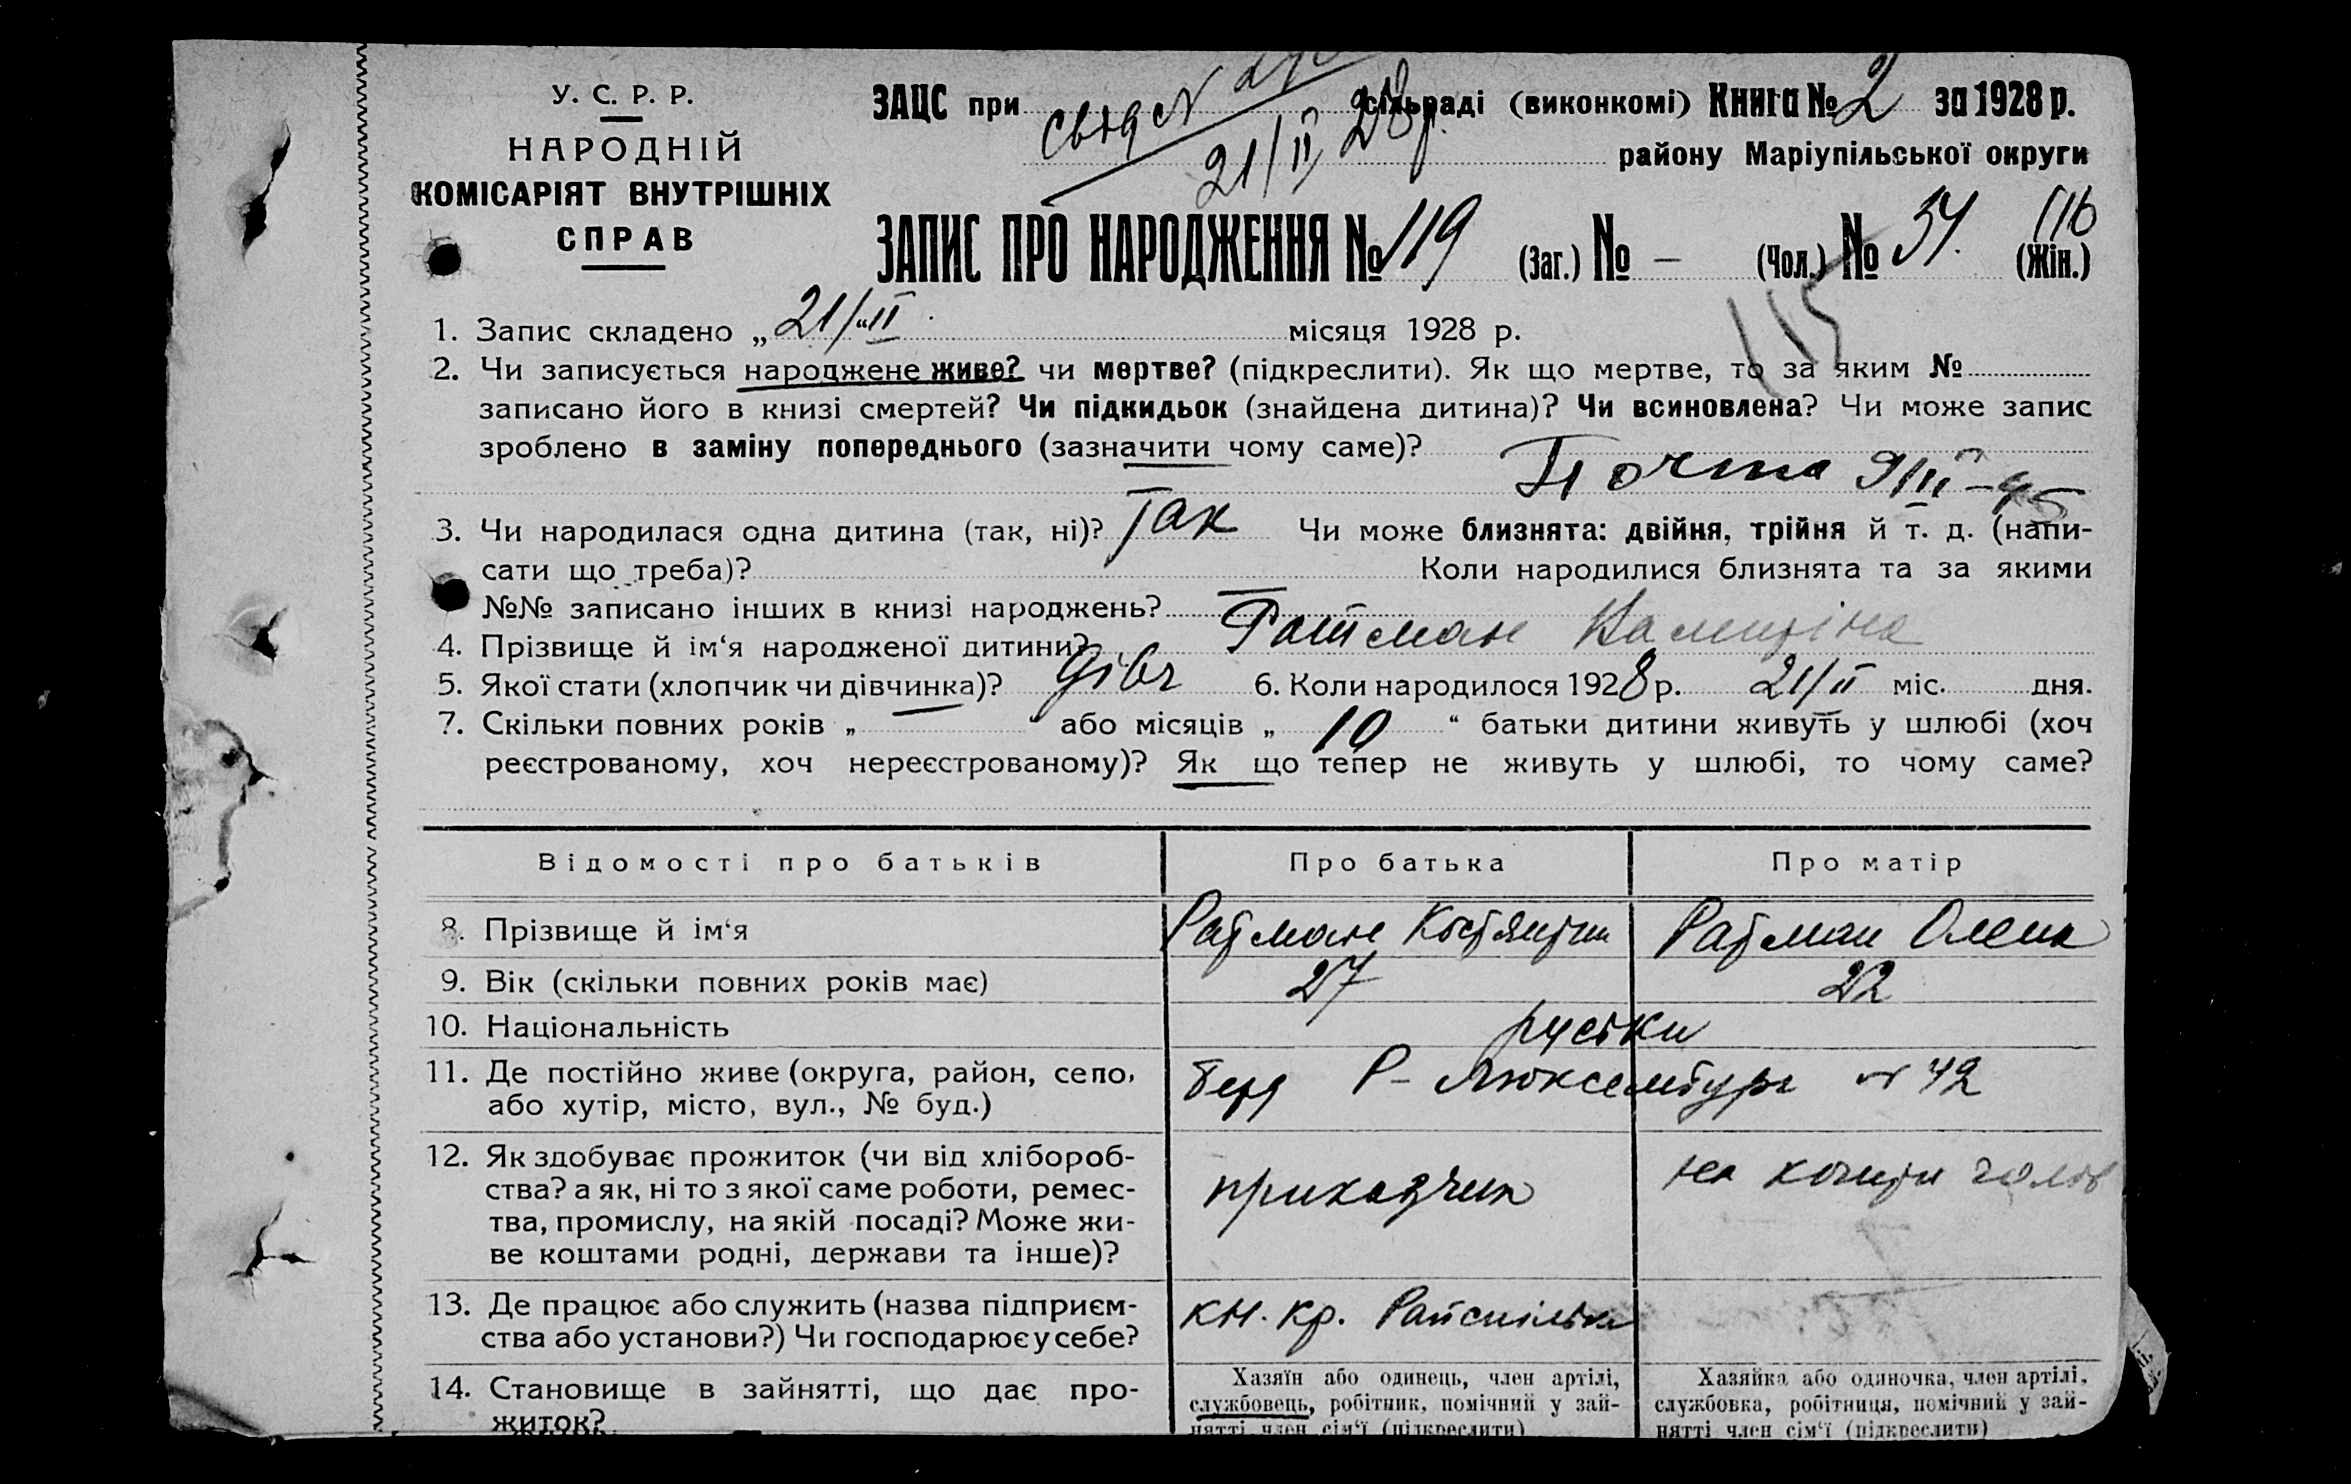 У. С. Р. Р.
НАРОДНІЙ
КОМІСАРІЯТ ВНУТРІШНІХ
СПРАВ
ЗАЦС при сільраді (виконкомі) Книга № 2 за 1928 р.
21/II 28 р.
району Маріупільської округи
ЗАПИС ПРО НАРОДЖЕННЯ № 119 (Заг.) № – (Чол.) № 54. (Жін.)
116
115
1. Запис складено „ 21/“ II місяця 1928 р.
2. Чи записується народжене живе? чи мертве? (підкреслити). Як що мертве, то за яким №
записано його в книзі смертей? Чи підкидьок (знайдена дитина)? Чи всиновлена? Чи може запис
зроблено в заміну попереднього (зазначити чому саме)?
3. Чи народилася одна дитина (так, ні)? Так Чи може близнята: двійня, трійня й т. д. (напи-
сати що треба)? Коли народилися близнята та за якими
№№ записано інших в книзі народжень?
4. Прізвище й ім‘я народженої дитини? Ратман
5. Якої стати (хлопчик чи дівчинка)? дівч 6. Коли народилося 1928 р. 21/II міс. дня.
7. Скільки повних років „ — “ або місяців „ 10 “ батьки дитини живуть у шлюбі (хоч
реєстрованому, хоч нереєстрованому)? Як що тепер не живуть у шлюбі, то чому саме?
Відомості про батьків Про батька Про матір
8. Прізвище й ім‘я Ратман Костянтин Ратман Олена
9. Вік (скільки повних років має) 27 22
10. Національність руські
11. Де постійно живе (округа, район, село,
або хутір, місто, вул., № буд.) Берд Р-Люксембург № 42
12. Як здобуває прожиток (чи від хлібороб-
ства? а як, ні то з якої саме роботи, ремес-
тва, промислу, на якій посаді? Може жи-
ве коштами родні, держави та інше)? приказчик на кошти чолов
13. Де працює або служить (назва підприєм-
ства або установи?) Чи господарює у себе? кн. кр. Райспілка
14. Становище в зайнятті, що дає про-
житок?
Хазяїн або одинець, член артілі,
службовець, робітник, помічний у зай-
нятті член сім‘ї (підкреслити)
Хазяйка або одиночка, член артілі,
службовка, робітниця, помічний у зай-
нятті член сім‘ї (підкреслити)